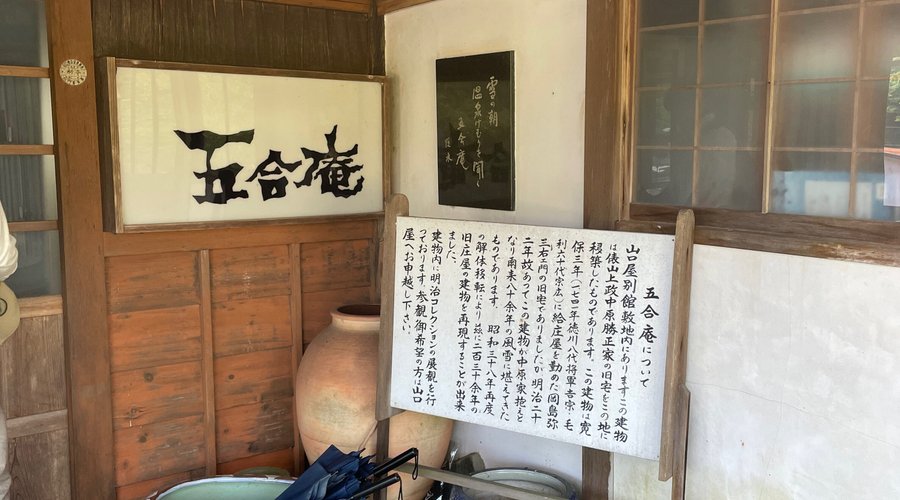 五合庵
雪の朝
温泉けむりも聞く
五合庵
五合庵について
山口屋別館敷地内にありますこの建物
は俵山上政中原勝正家の旧宅をこの地に
移築したものであります。この建物は寛
保三年(一七四三年徳川八代将軍吉宗、毛
利六十代宗広)に給庄屋を勤めた岡島弥
三右ェ門の旧宅でありましたが明治二十
二年故あってこの建物が中原家抱えと
なり爾来八十余年の風雪に堪えてきた
ものであります。昭和三十八年再度
の解体移転により茲に二百三十余年の
旧庄屋の建物を再現することが出来
ました。
建物内に明治コレクションの展観を行
っております。参観御希望の方は山口
屋へお申越し下さい。